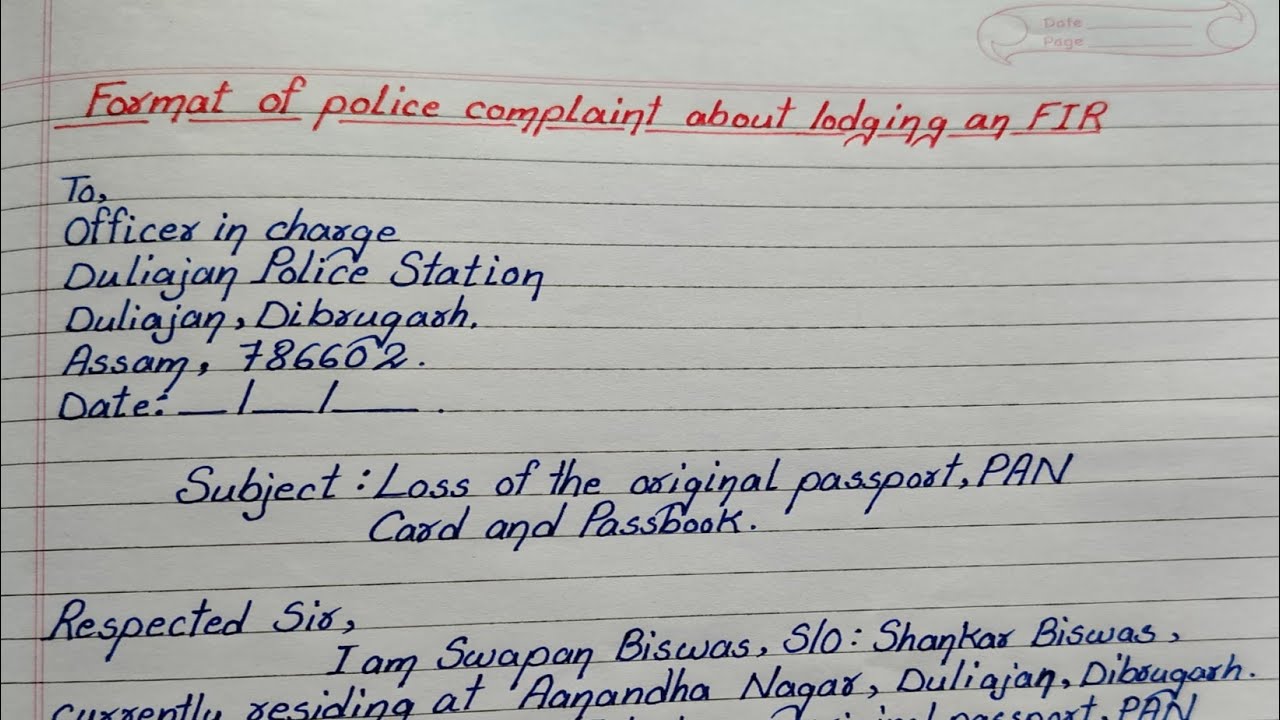 Date
Page
Format of police complaint about lodging an FIR
To,
Officer in charge
Duliajan Police Station
Duliajan, Dibrugarh.
Assam, 786602.
Date: __/__/____.
Subject: Loss of the original passport, PAN
Card and Passbook.
Respected Sir,
I am Swapan Biswas, S/O: Shankar Biswas,
currently residing at Aanandha Nagar, Duliajan, Dibrugarh.
original passport, PAN